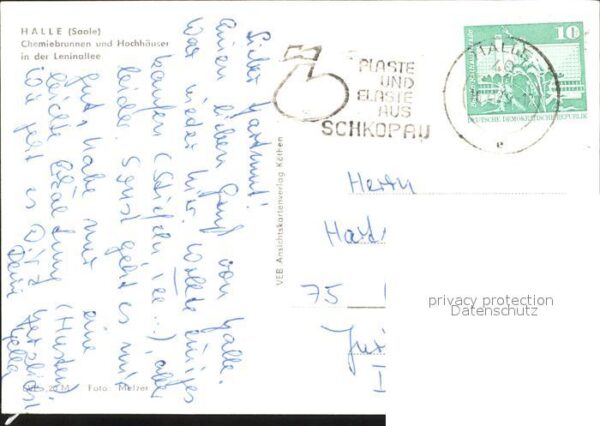 HALLE (Saale)
Chemiebrunnen und Hochhäuser
in der Leninallee
Lieber Hartmut!
Einen lieben Gruß von Halle.
War wieder hier. Wollte einiges
kaufen (Stiefel u. …), aber
leider. Sonst geht es mir
gut, habe nur eine
leichte Erkältung (Husten)
Wie geht es Dir? Herzlichst
Deine
0,20 M Foto: Melzer
VEB Ansichtskartenverlag Köthen
PLASTE
UND
ELASTE
AUS
SCHKOPAU
HALLE
40
e
10
DEUTSCHE DEMOKRATISCHE REPUBLIK
Herrn
Hart
75
privacy protection
Datenschutz